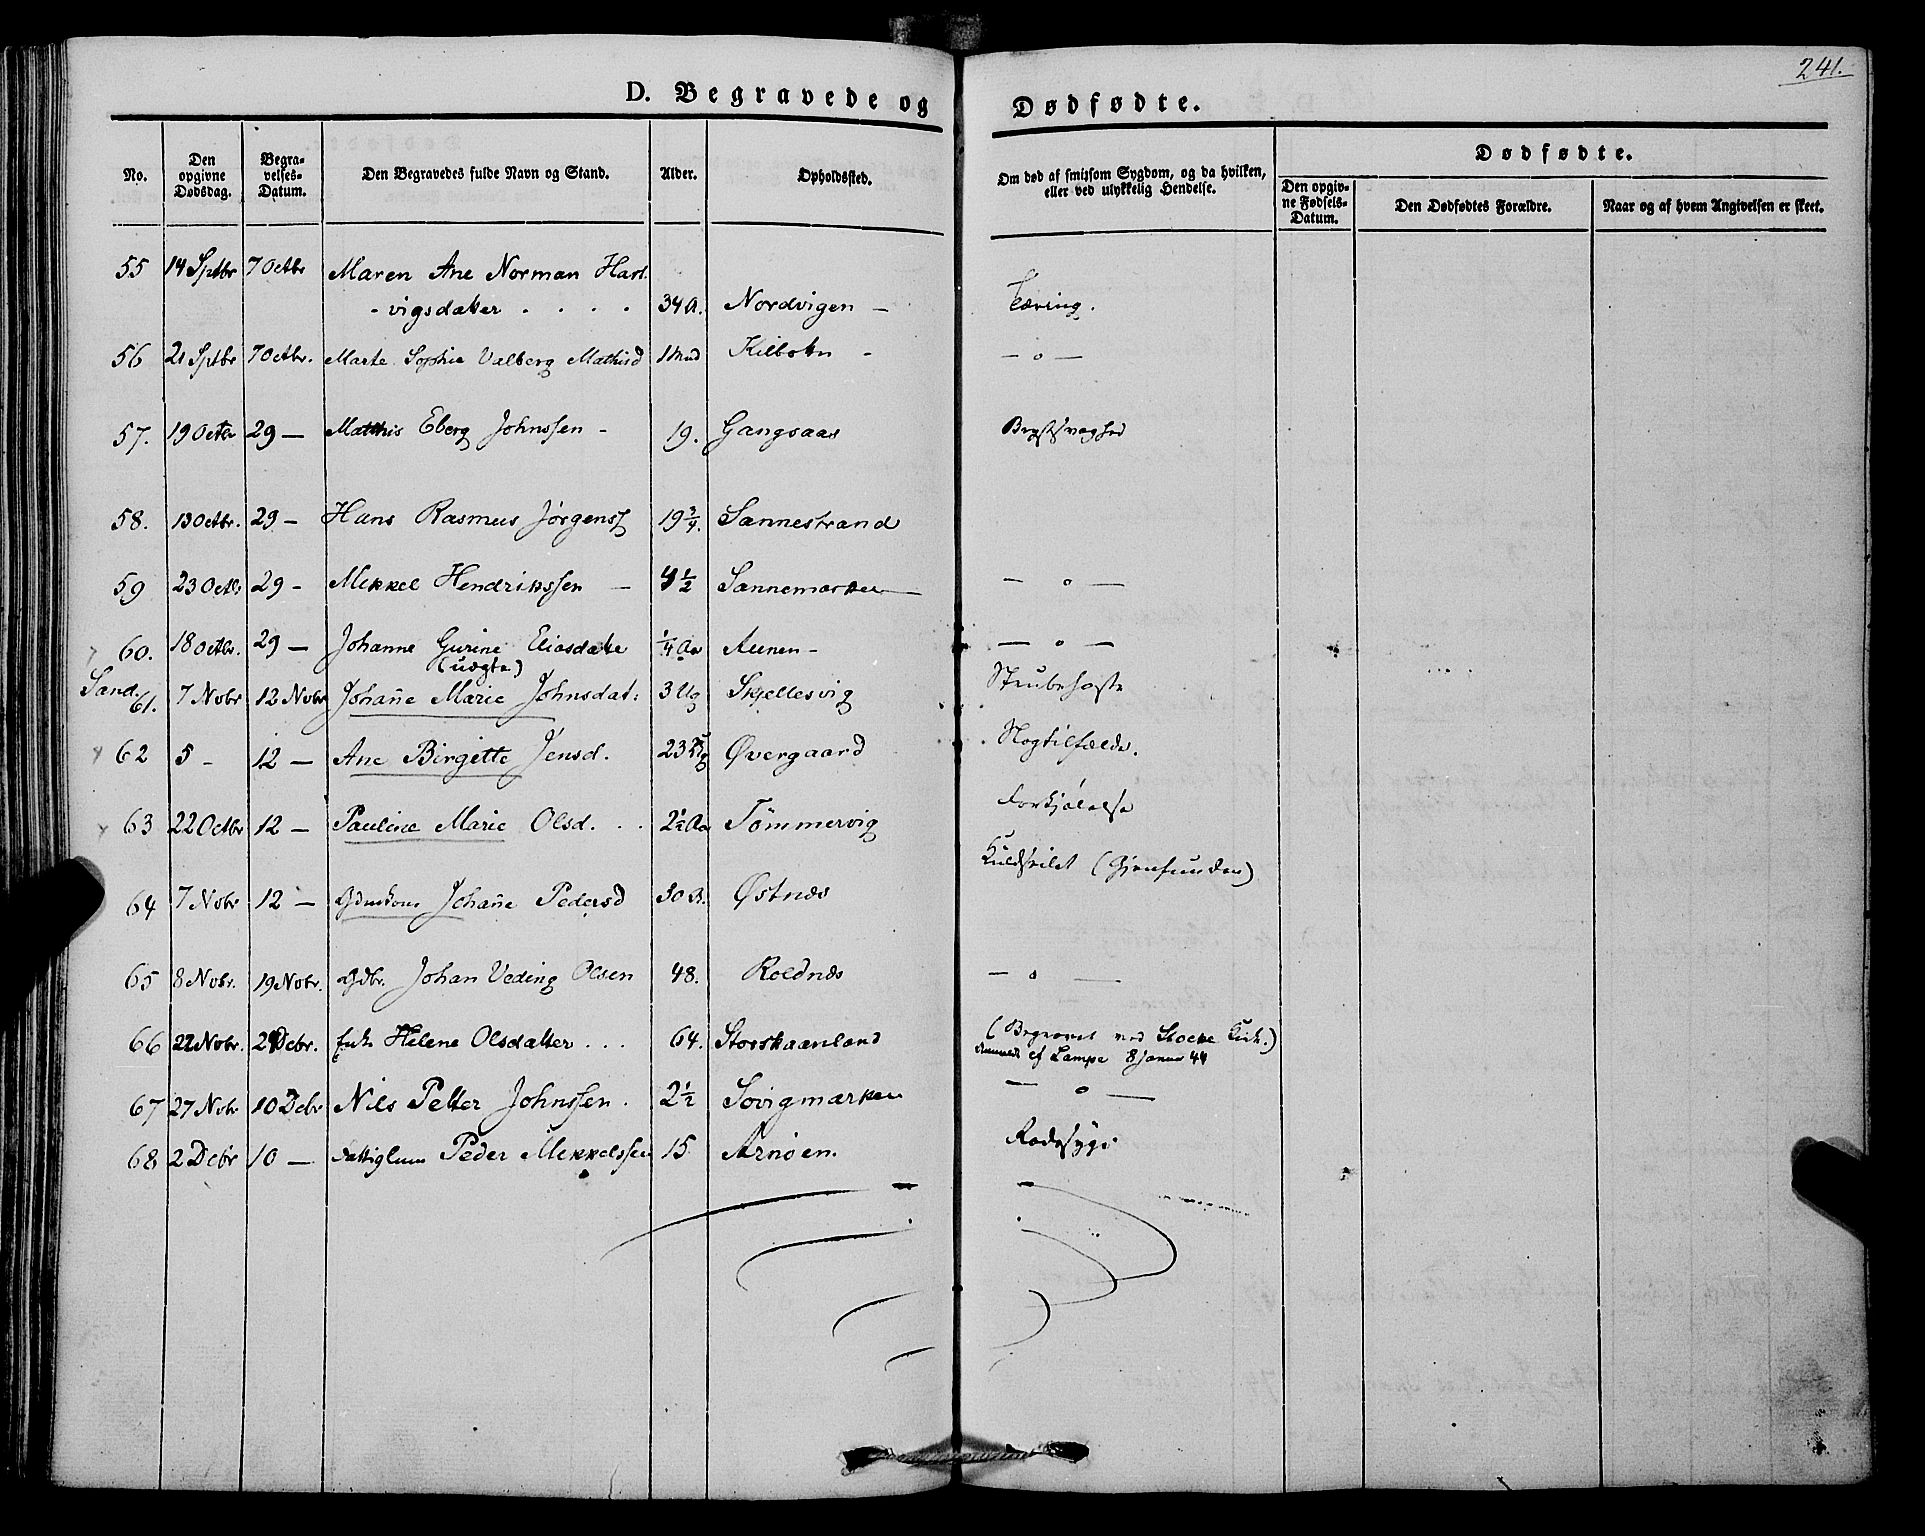 241.
D. Begravede og Dødfødte.
No. Den opgivne Dødsdag. Begravelses-Datum. Den Begravedes fulde Navn og Stand. Alder. Opholdssted. Om død af smitsom Sygdom, og da hvilken, eller ved ulykkelig Hendelse. Dødfødte.
Den opgivne Fødsels-Datum. Den Dødfødtes Forældre. Naar og af hvem Angivelsen er skeet.
55 14 Sptbr 7 Octbr Maren Ane Norman Hart
-vigsdatter . . . . 34 A. Nordvigen - Tæring.
56 21 Sptbr 7 Octbr. Marte Sophie Valberg Mathisd 1 Mnd Kilbotn - — o —
57. 19 Octbr 29 — Matthis Eberg Johnssen - 19. Gangsaas Brystsvaghed
58. 13 Octbr. 29 — Hans Rasmus Jørgens 19 3/4. Sannestrand
59 23 Octb 29 - Mekkel Hendrikssen — 4 1/2 Sannemarken — — o —
60. 18 Octbr. 29 — Johanne Gurine Eliasdatte 1/4 Aa Aunen - — o —
(uægte)
Sand. 61. 7 Nobr 12 Nobr Johan̄e Marie Johnsdat: 3 Ug Skjellesvig Strubehoste
62 5 - 12 — Ane Birgitte Jensd. 23 Øvergaard Slagtilfælde.
63 22 Octbr 12 — Pauline Marie Olsd. . . 2 1/2 Aa Tömmervig Forkjølelse
64 7 Nobr 12 — Johan̄e Pedersd 30 Østnæs Kuldseilet (Gjenfunden)
65 8 Nobr. 19 Nobr. Gdbr. Johan Veding Olsen 48. Roldnæs — o —
66 22 Nobr. Debr. Enk Helene Olsdatter . . . 64. Storskaanland (Begravet ved Kirk.)
af Lampe 8 Januar 44
67 27 Nobr 10 Debr Nils Petter Johnssen . 2 1/2 Sövigmarken — o —
68 2 Debr 10 — Fattiglem Peder Mekkelssen 15 Arnöen. Radesyge